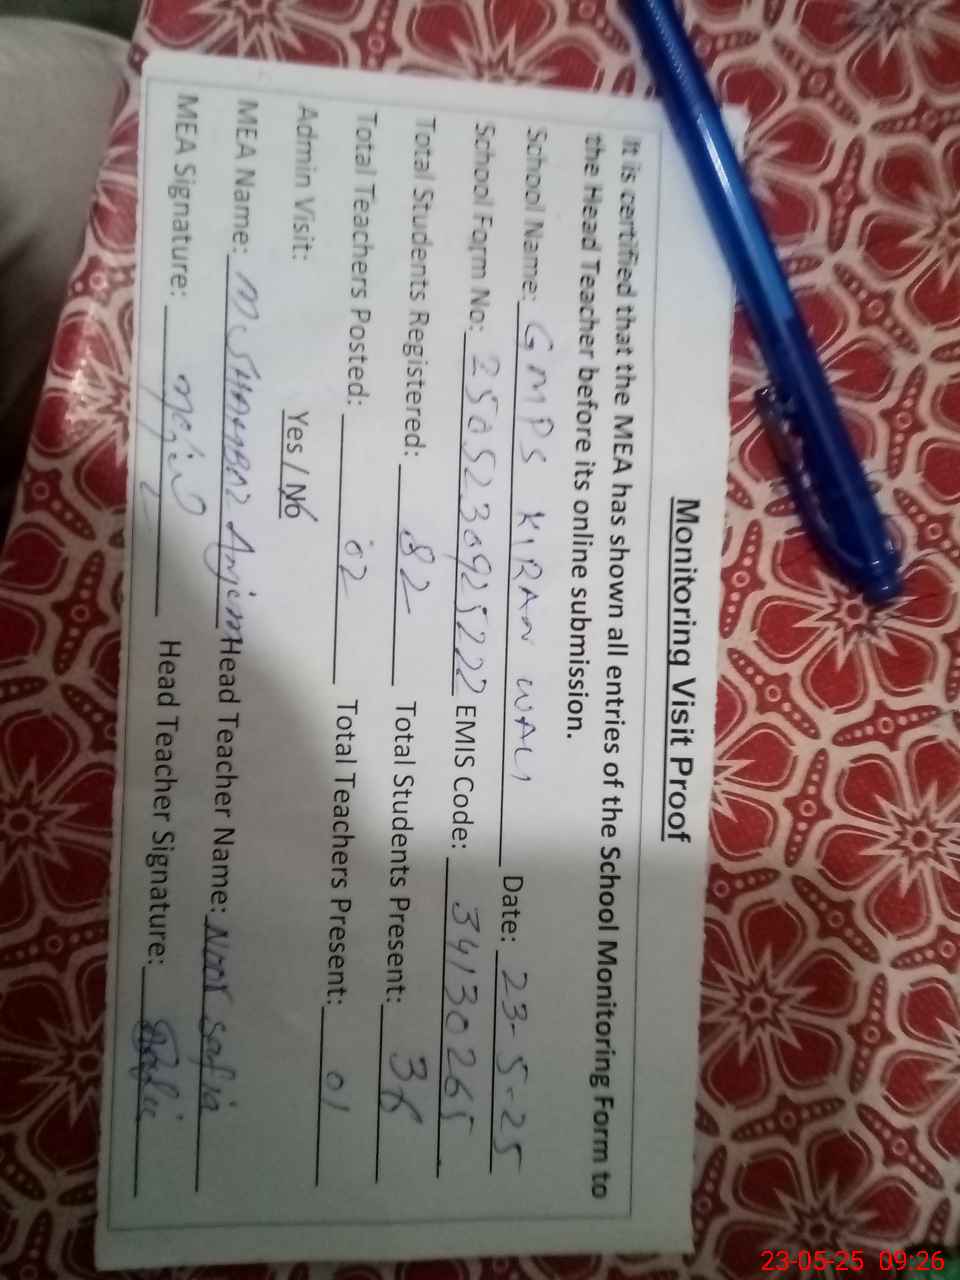 Monitoring Visit Proof
It is certified that the MEA has shown all entries of the School Monitoring Form to
the Head Teacher before its online submission.
School Name: GMPS KIRAN WALI Date: 23-5-25
School Form No: EMIS Code: 34130265
Total Students Registered: 82 Total Students Present:
Total Teachers Posted: 02 Total Teachers Present: 01
Admin Visit: Yes / No
MEA Name: Anjum Head Teacher Name: Noor Safia
MEA Signature: Head Teacher Signature: Safia
23-05-25 09:26